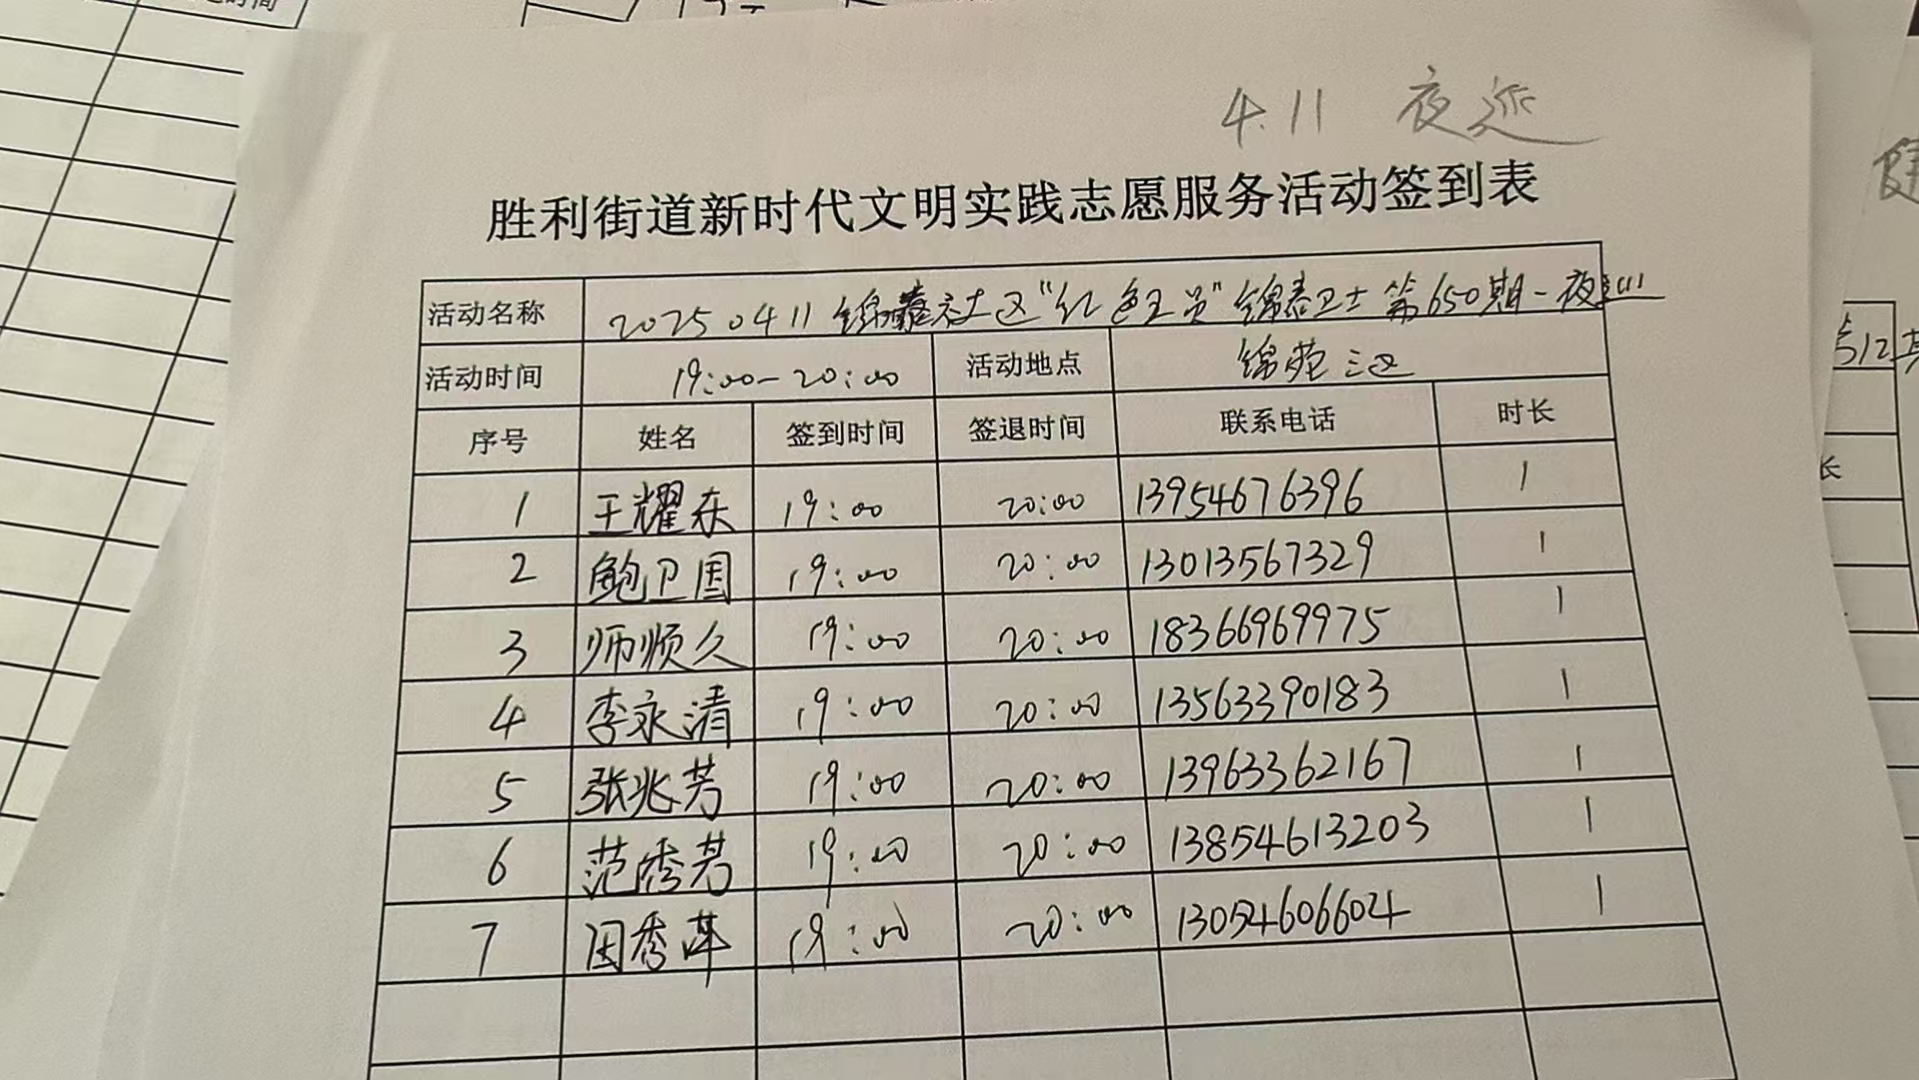 4.11 夜巡
胜利街道新时代文明实践志愿服务活动签到表
活动名称 20250411锦泰社区"红色王员"锦泰卫士第650期-夜巡
活动时间 19:00-20:00 活动地点 锦苑三区
序号 姓名 签到时间 签退时间 联系电话 时长
1 王耀东 19:00 20:00 13954676396 1
2 鲍卫国 19:00 20:00 13013567329 1
3 师顺久 19:00 20:00 18366969975 1
4 李永清 19:00 20:00 13563390183 1
5 张兆芳 19:00 20:00 13963362167 1
6 范秀芳 19:00 20:00 13854613203 1
7 田秀萍 19:00 20:00 13054606604 1